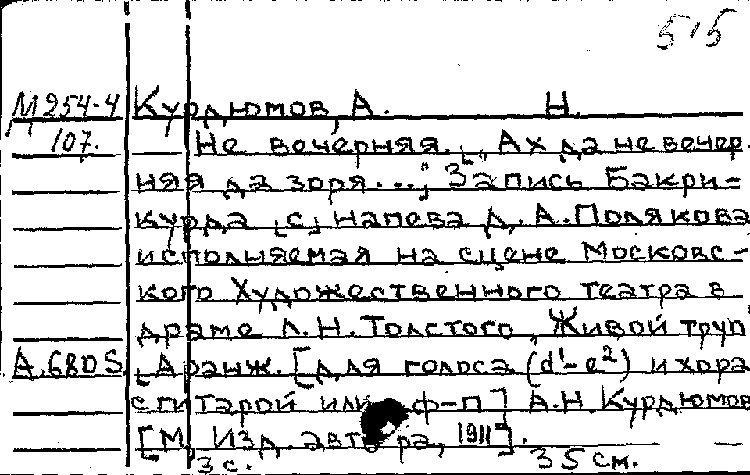 515
М 254-4 Курдюмов, А. Н.
107. Не вечерняя. „Ах да не вечер-
няя да зоря...“; Запись Бакри-
курда [с] напева Д. А. Полякова
исполняемая на сцене Московс-
кого Художественного театра в
драме Л. Н. Толстого „Живой труп
А.680 S. Аранж. [для голоса (d¹-e²) и хора
с гитарой или ф-п] А.Н. Курдюмов
[М, Изд. автора, 1911].
3 с. 35 см.